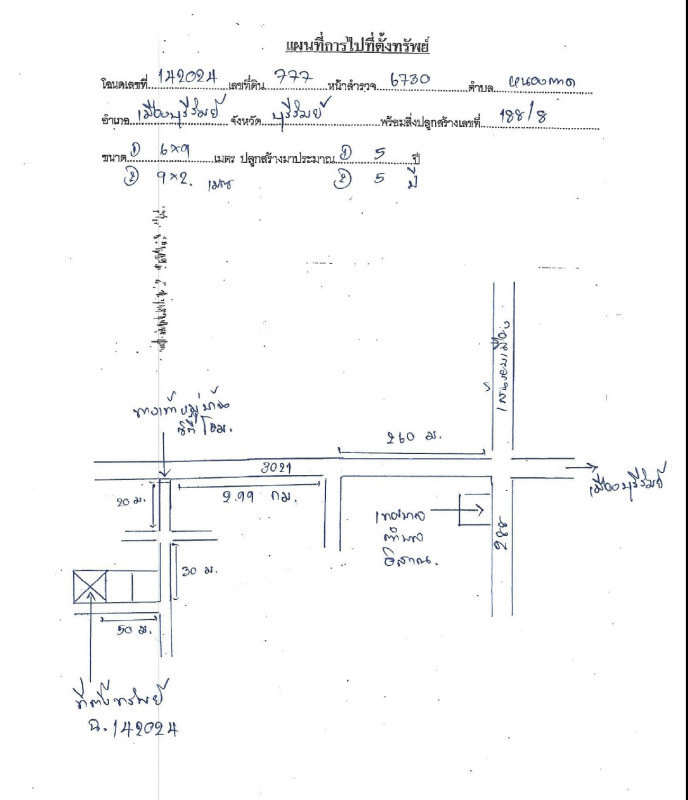 แผนที่การไปที่ตั้งทรัพย์
โฉนดเลขที่ 142024 เลขที่ดิน 777 หน้าสำรวจ 6730 ตำบล หนองตาด
อำเภอ เมืองบุรีรัมย์ จังหวัด บุรีรัมย์ พร้อมสิ่งปลูกสร้างเลขที่ 188/8
ขนาด ① 6×9 เมตร ปลูกสร้างมาประมาณ ① 5 ปี
② 9×2. เมตร ② 5 ปี
ทางเข้าหมู่บ้าน
ซิตี้โฮม.
260 ม.
เมืองบุรีรัมย์
3021
20 ม.
2.99 กม.
เทศบาล
ตำบล
อิสาณ.
288
30 ม.
50 ม.
ที่ตั้งทรัพย์
ฉ.142024